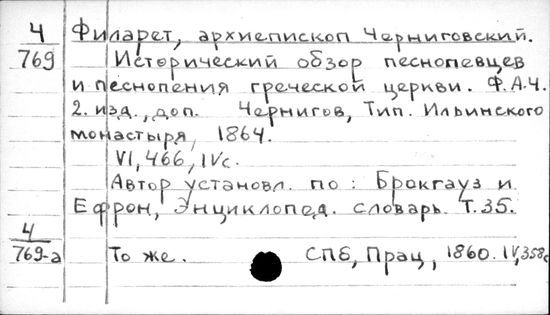 4 Филарет, архиепископ Черниговский.
769 Исторический обзор песнопевцев
и песнопения греческой церкви. Ф.А.Ч.
2. изд., доп. Чернигов, Тип. Ильинского
монастыря, 1864.
VI, 466, IV с.
Автор установл. по: Брокгауз и
Ефрон, Энциклопед. словарь. Т.35.
4
769-а То же. СПб, Прац, 1860. IV, 358с